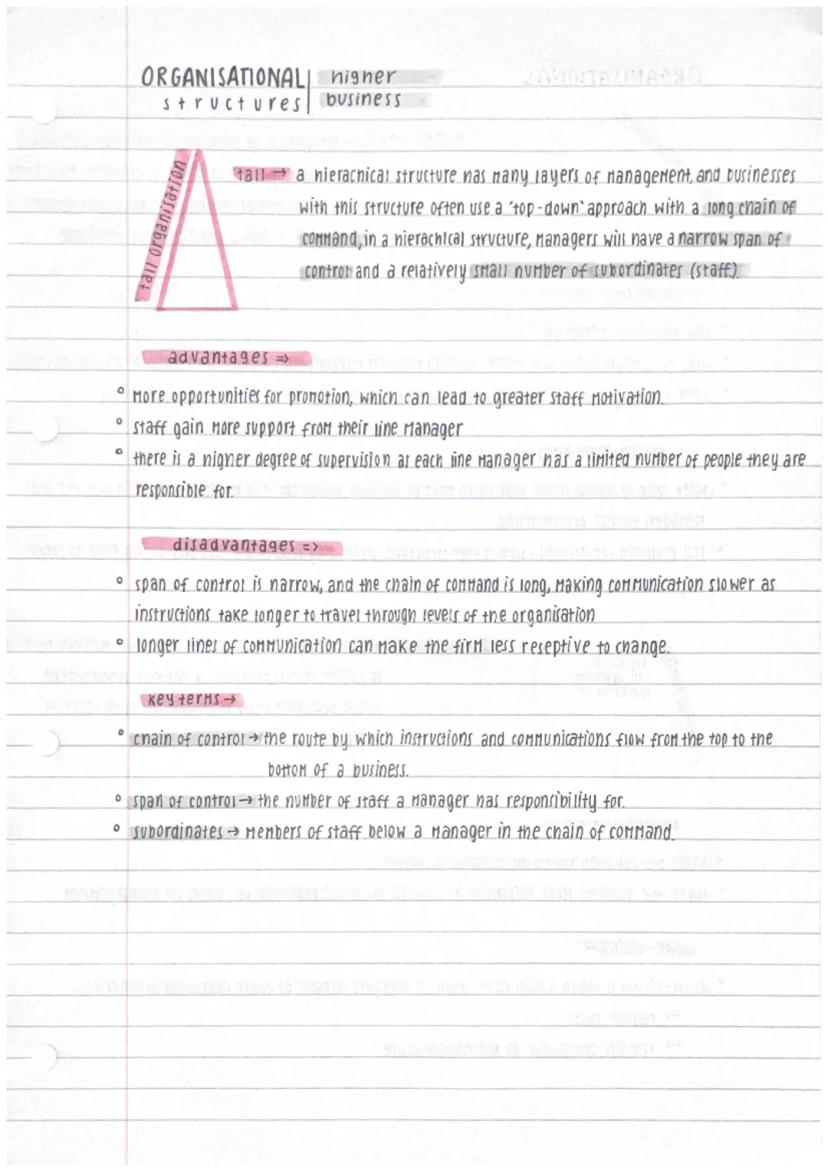 ORGANISATIONAL higher
structures business
tall organisation
tall → a hierachical structure has many layers of management, and businesses
with this structure often use a 'top-down' approach with a long chain of
command, in a hierachical structure, managers will have a narrow span of
control and a relatively small number of subordinates (staff).
advantages ⇒
° more opportunities for promotion, which can lead to greater staff motivation.
° staff gain more support from their line manager
° there is a higher degree of supervision as each line manager has a limited number of people they are
responsible for.
disadvantages =>
° span of control is narrow, and the chain of command is long, making communication slower as
instructions take longer to travel through levels of the organisation
° longer lines of communication can make the firm less reseptive to change.
key terms →
° chain of control → the route by which instructions and communications flow from the top to the
bottom of a business.
° span of control → the number of staff a manager has responsibility for.
° subordinates → members of staff below a manager in the chain of command.